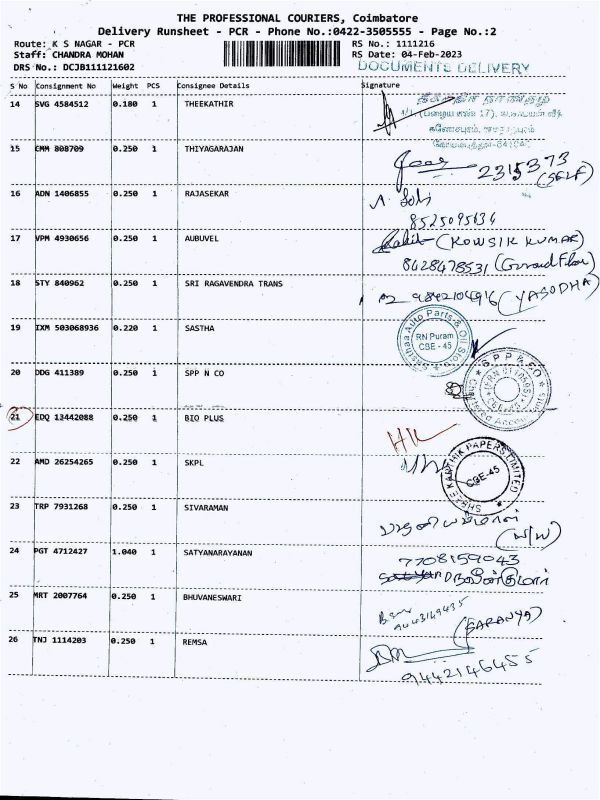 THE PROFESSIONAL COURIERS, Coimbatore
Delivery Runsheet - PCR - Phone No.:0422-3505555 - Page No.:2
Route: K S NAGAR - PCR
RS No.: 1111216
Staff: CHANDRA MOHAN
RS Date: 04-Feb-2023
DRS No.: DCJB111121602
DOCUMENTS DELIVERY
S No Consignment No Weight PCS Consignee Details Signature
14 SVG 4584512 0.180 1 THEEKATHIR
15 CMM 808709 0.250 1 THIYAGARAJAN
2315373
(SELF)
16 ADN 1406855 0.250 1 RAJASEKAR
8525095634
17 VPM 4930656 0.250 1 AUBUVEL
(KOWSIK KUMAR)
8428478531 (Ground Floor)
18 STY 840962 0.250 1 SRI RAGAVENDRA TRANS
9842104696 (YASODHA)
19 IXM 503068936 0.220 1 SASTHA
Sasthaa Auto Parts & Oil Store
RN Puram
CBE - 45
20 DDG 411389 0.250 1 SPP N CO
SPP & CO
Chartered Accountants
21 EDQ 13442088 0.250 1 BIO PLUS
22 AMD 26254265 0.250 1 SKPL
SHREE KARTHIK PAPERS LIMITED
CBE-45
23 TRP 7931268 0.250 1 SIVARAMAN
24 PGT 4712427 1.040 1 SATYANARAYANAN
7708159043
25 MRT 2007764 0.250 1 BHUVANESWARI
9443149435
(SARANYA)
26 TNJ 1114203 0.250 1 REMSA
9442146455